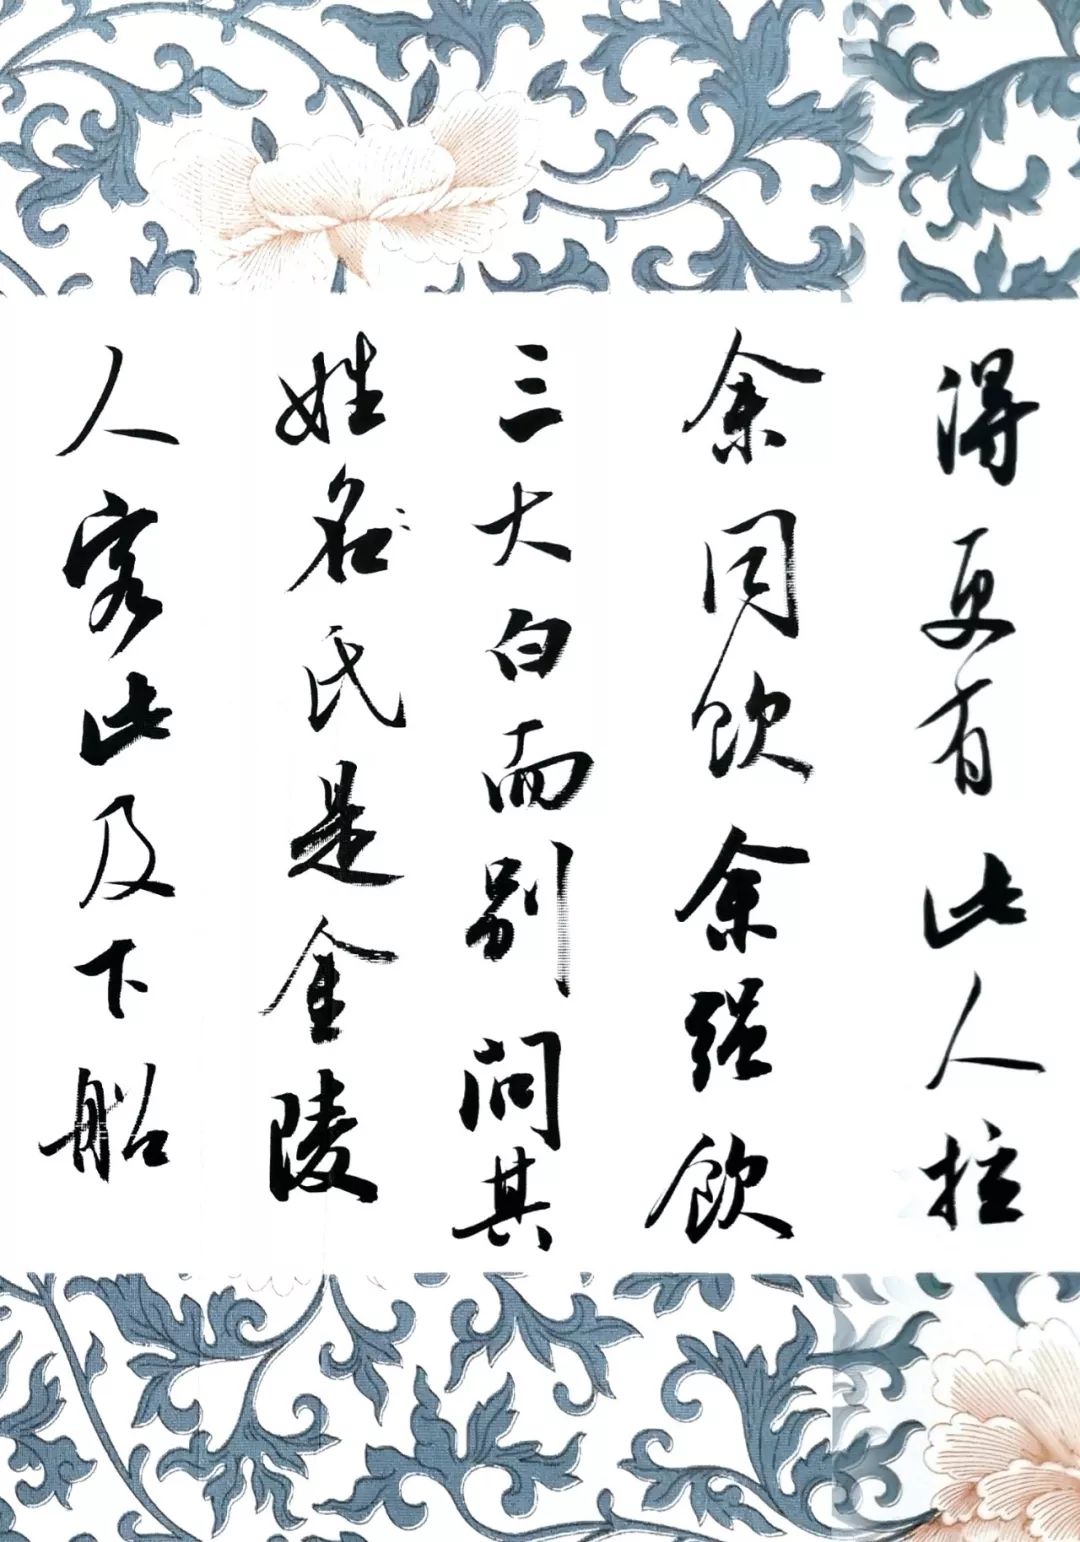 得更有此人拉
余同饮余强饮
三大白而别问其
姓名氏是金陵
人客此及下船